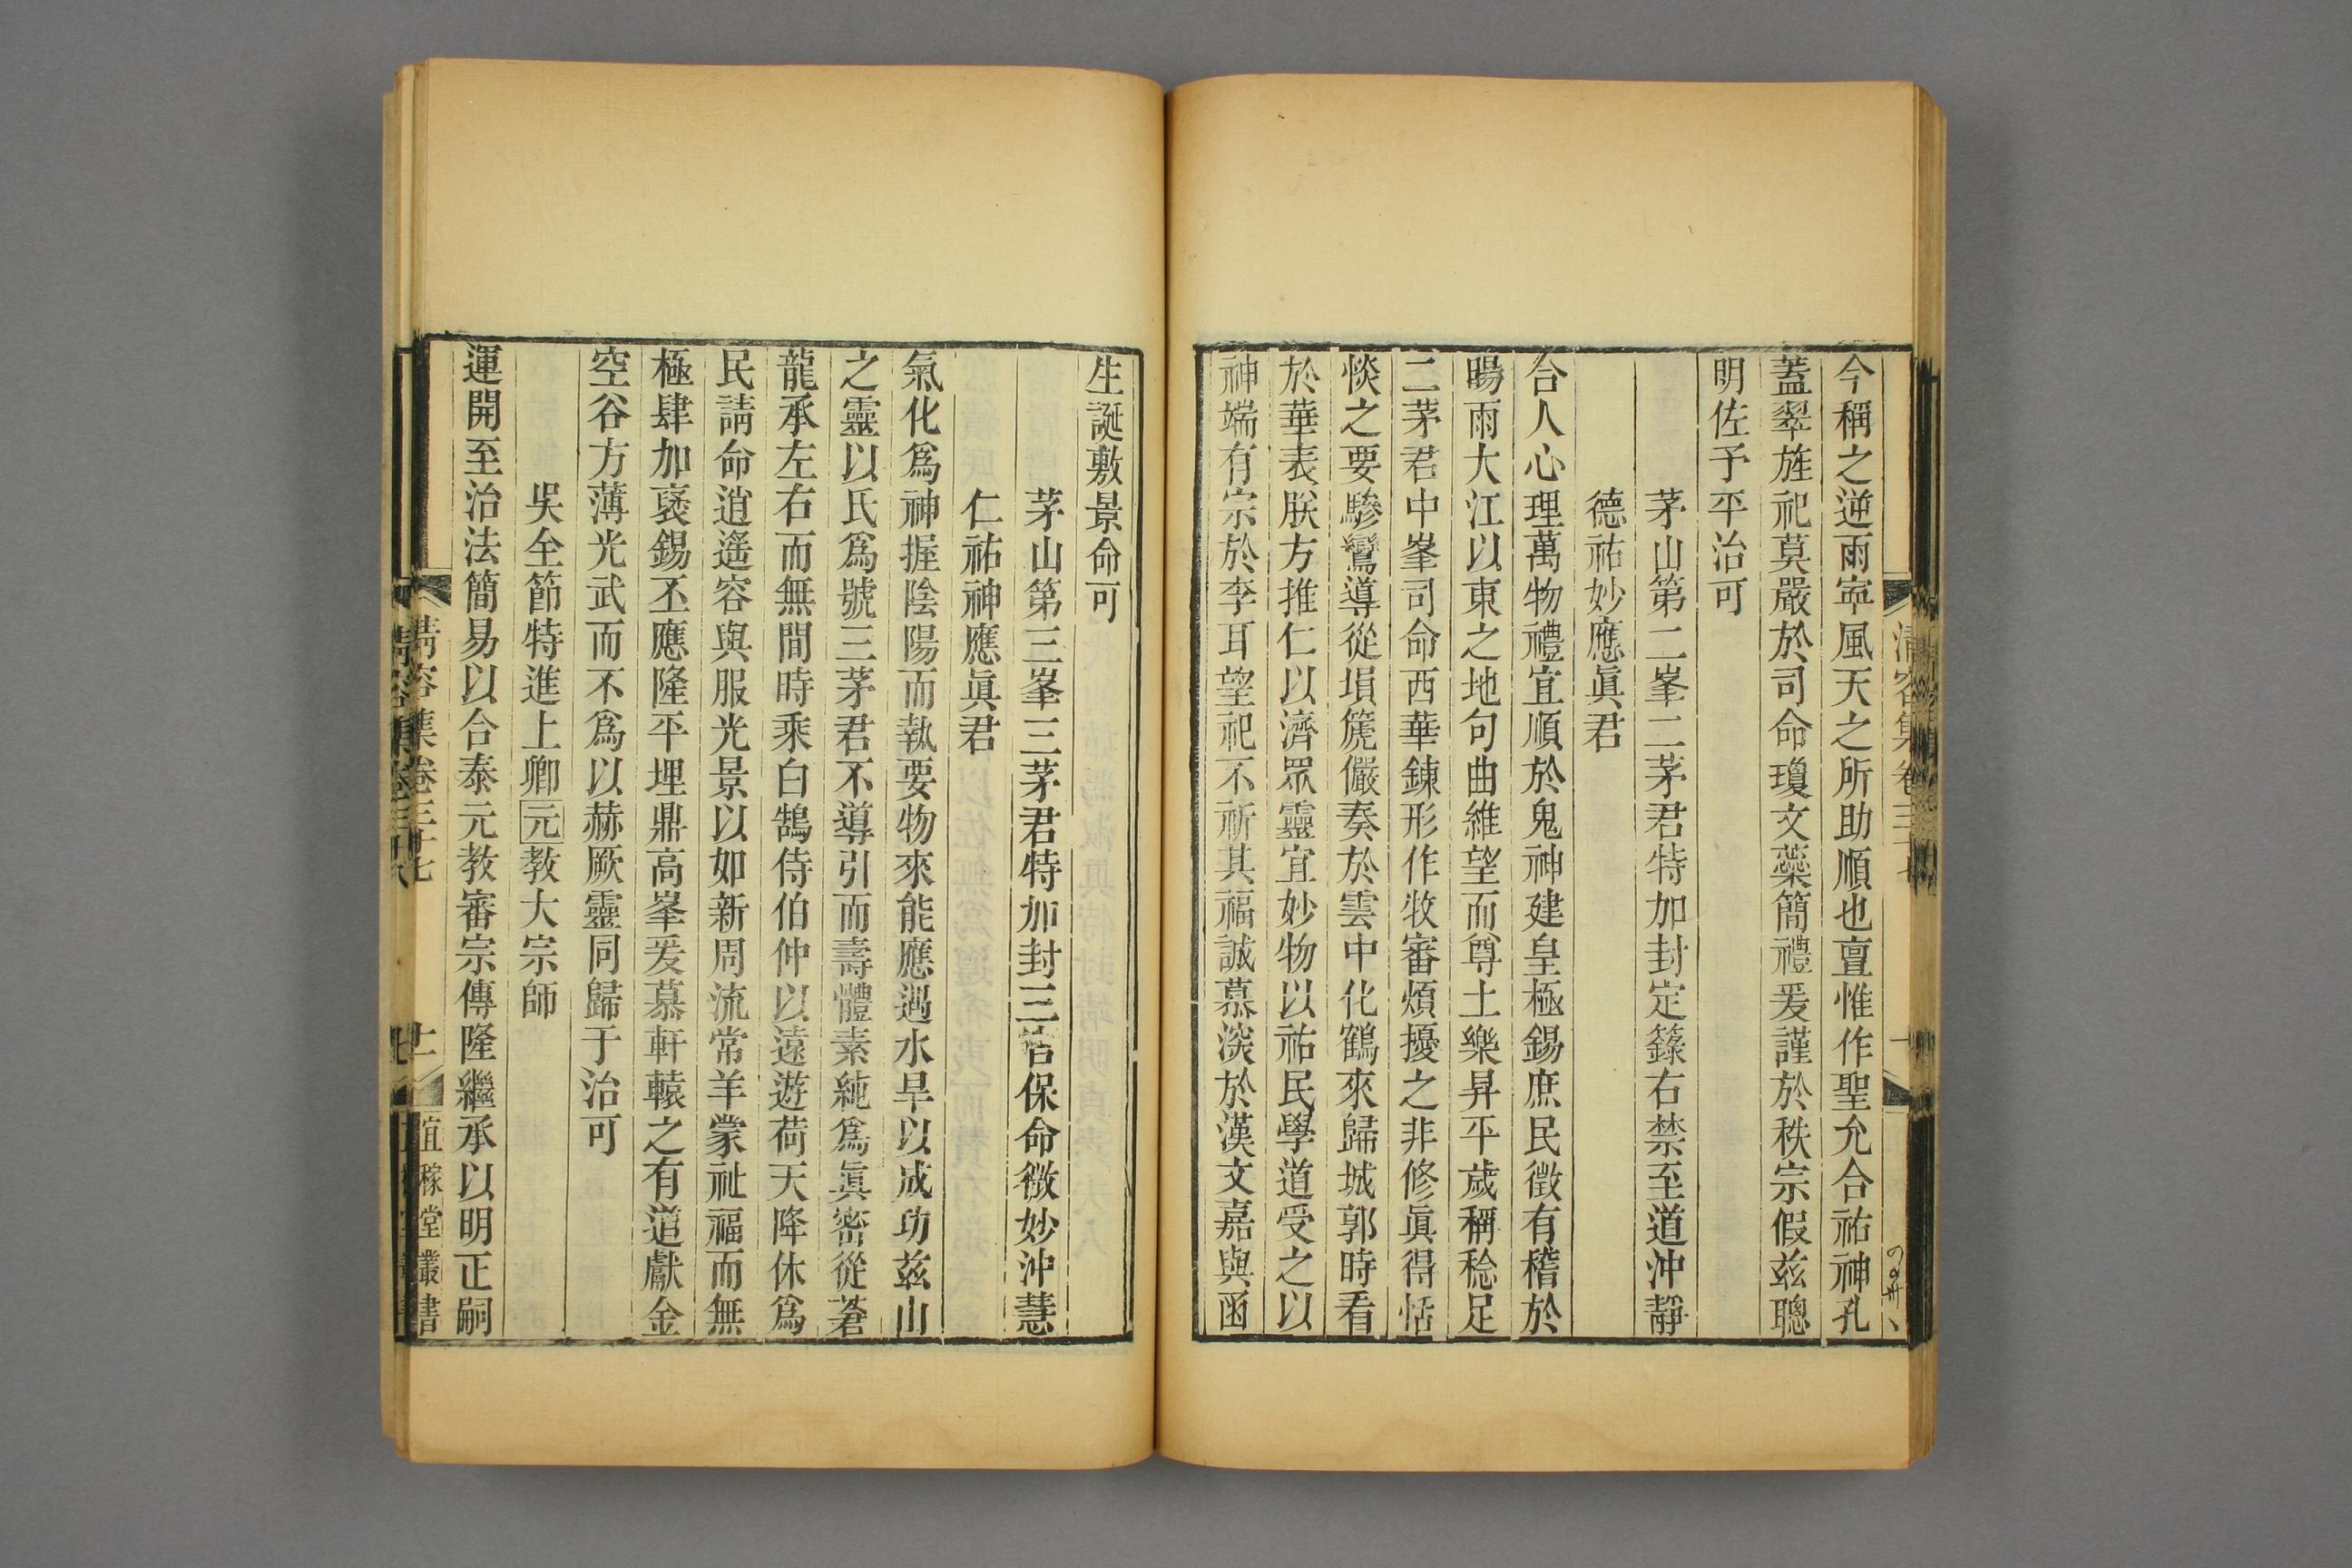 今稱之逆雨寍風天之所助順也亶惟作聖允合祐神孔
蓋翠旌祀莫嚴於司命瓊文蘂簡禮爰謹於秩宗假茲聰
明佐予平治可
茅山第二峯二茅君特加封定籙右禁至道沖靜
德祐妙應眞君
合人心理萬物禮宜順於鬼神建皇極錫庶民徵有稽於
暘雨大江以東之地句曲維望而尊土樂昇平歲稱稔足
二茅君中峯司命西華鍊形作牧審煩擾之非修眞得恬
惔之要驂鸞導從塤篪儼奏於雲中化鶴來歸城郭時看
於華表朕方推仁以濟眾靈宜妙物以祐民學道受之以
神端有宗於李耳望祀不祈其福誠慕淡於漢文嘉與函
生誕敷景命可
茅山第三峯三茅君特加封三官保命微妙沖慧
仁祐神應眞君
氣化爲神握陰陽而執要物來能應遇水旱以成功茲山
之靈以氏爲號三茅君不導引而壽體素純爲眞密從蒼
龍承左右而無間時乘白鵠侍伯仲以遠遊荷天降休爲
民請命逍遙容與服光景以如新周流常羊蒙祉福而無
極肆加褒錫丕應隆平埋鼎高峯爰慕軒轅之有道獻金
空谷方薄光武而不爲以赫厥靈同歸于治可
吳全節特進上卿元教大宗師
運開至治法簡易以合泰元教審宗傳隆繼承以明正嗣
清容集卷三十七
十一
宜稼堂叢書